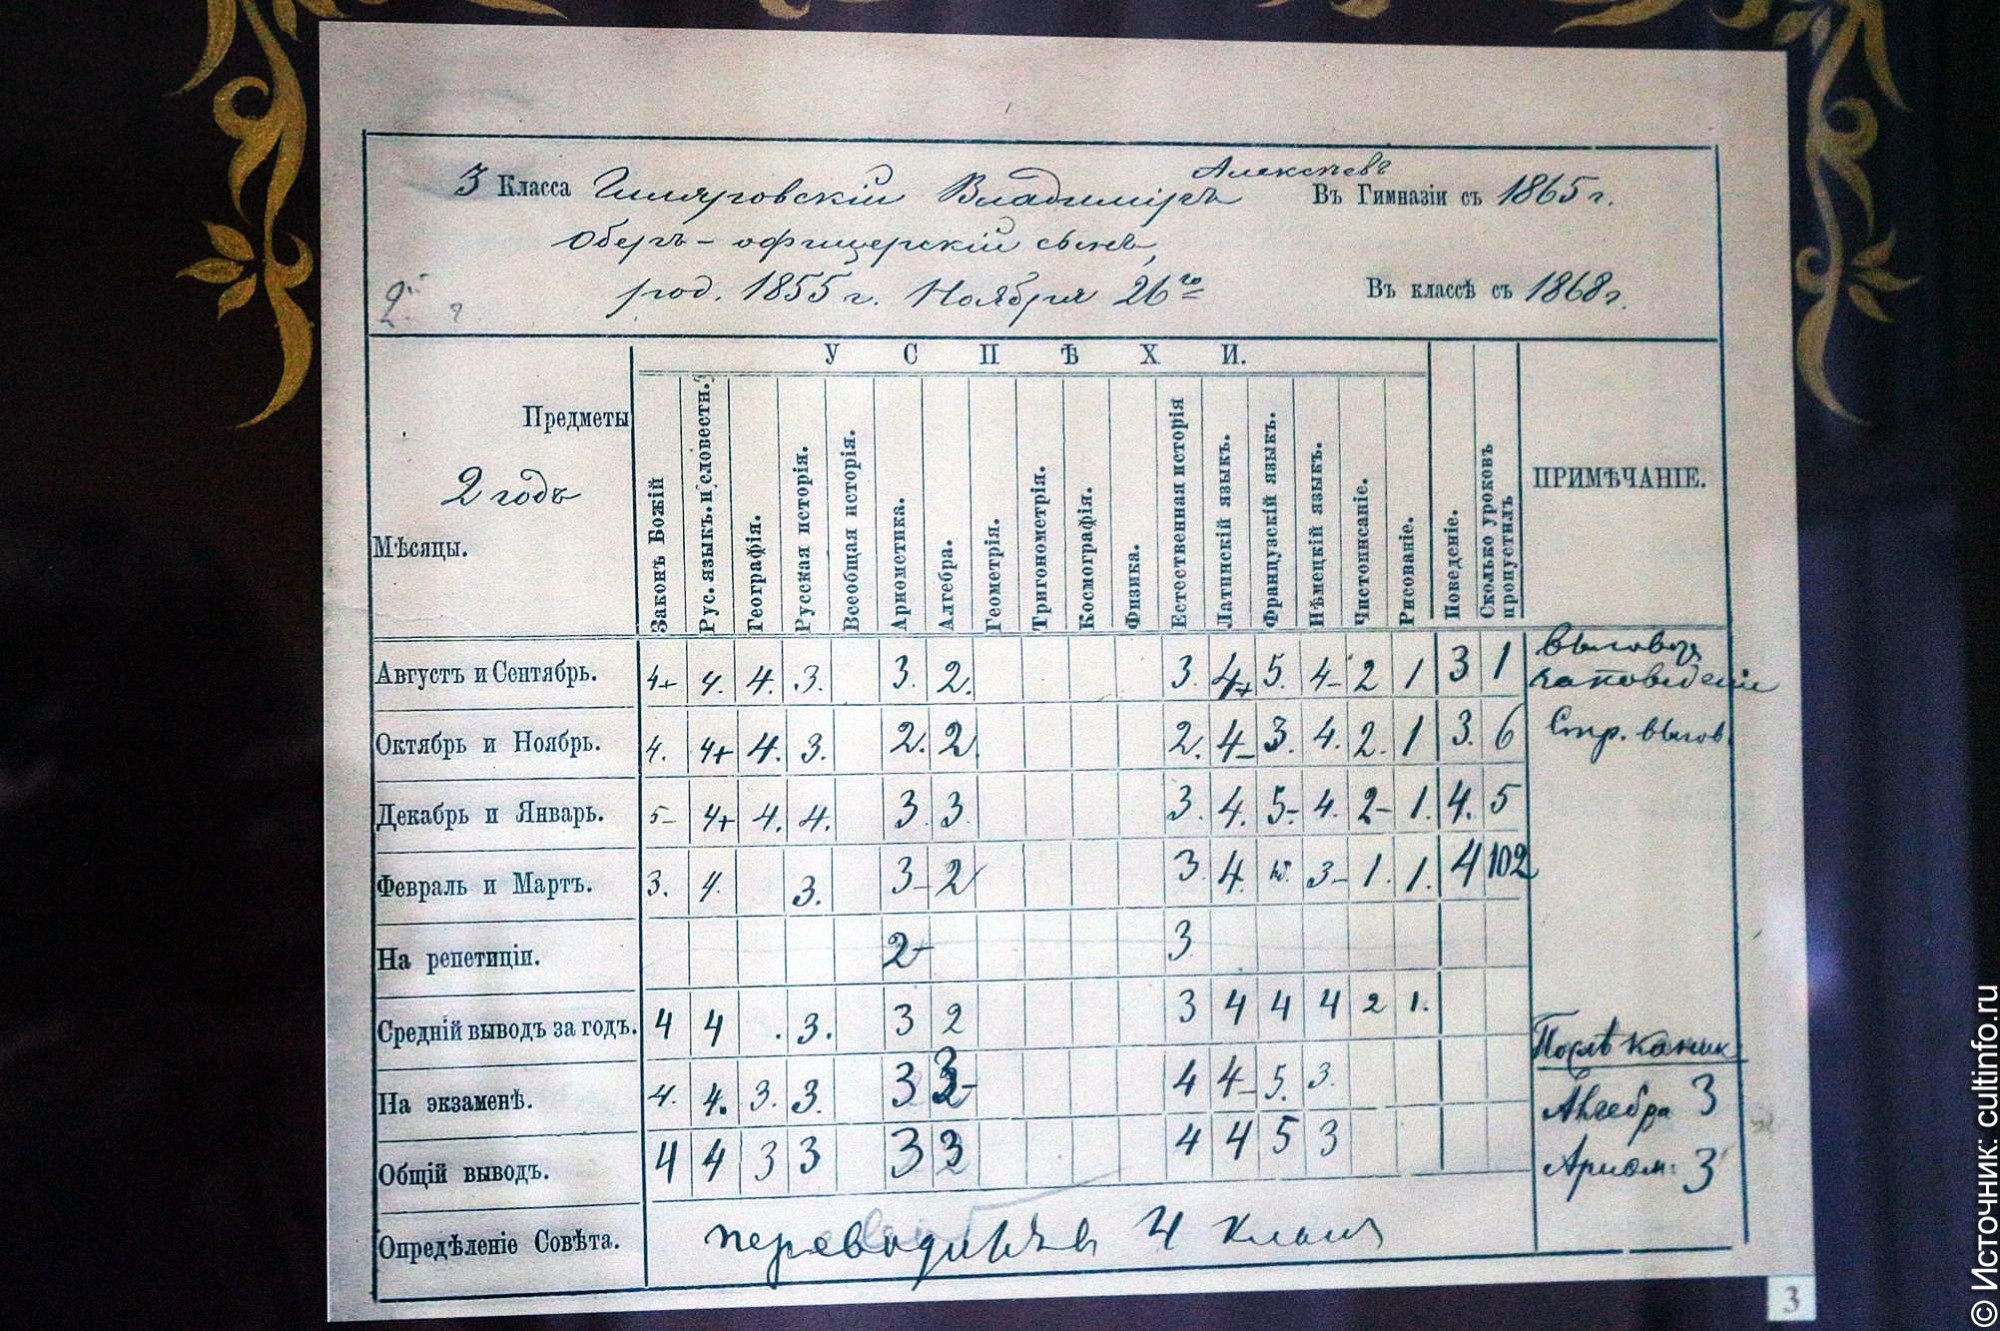 3 Класса Гиляровскій Владиміръ Алексѣевъ Въ Гимназіи съ 1865 г.
Оберъ-офицерскій сынъ,
род. 1855 г. Ноября 26го Въ классѣ съ 1868 г.
УСПѢХИ.
Предметы
2 годъ
Мѣсяцы.
Законъ Божій
Рус. языкъ. и словести.
Географія.
Русская исторія.
Всеобщая исторія.
Ариөметика.
Алгебра.
Геометрія.
Тригонометрія.
Космографія.
Физика.
Естественная исторія
Латинскій языкъ.
Французскій языкъ.
Нѣмецкій языкъ.
Чистописаніе.
Рисованіе.
Поведеніе.
Сколько уроковъ
пропустилъ
ПРИМѢЧАНІЕ.
Августъ и Сентябрь. 4+ 4. 4. 3. 3. 2. 3. 4+ 5. 4- 2 1 3 1 Выговоръ
за поведеніе
Октябрь и Ноябрь. 4. 4+ 4. 3. 2. 2. 2. 4- 3. 4. 2. 1 3. 6 Стр. выгов.
Декабрь и Январь. 5- 4+ 4. 4. 3. 3. 3. 4. 5- 4. 2- 1. 4. 5
Февраль и Мартъ. 3. 4. 3. 3- 2 3. 4. 3- 1. 1. 4 102
На репетиціи. 2- 3
Средній выводъ за годъ. 4 4 . 3. 3 2 3 4 4 4 2 1.
Послѣ каник.
На экзаменѣ. 4. 4. 3. 3. 3 4 4- 5. 3. Алгебра 3
Общій выводъ. 4 4 3 3 3 3 4 4 5 3 Ариөм. 3
Опредѣленіе Совѣта. переводится въ 4 классъ
3
© Источник: cultinfo.ru